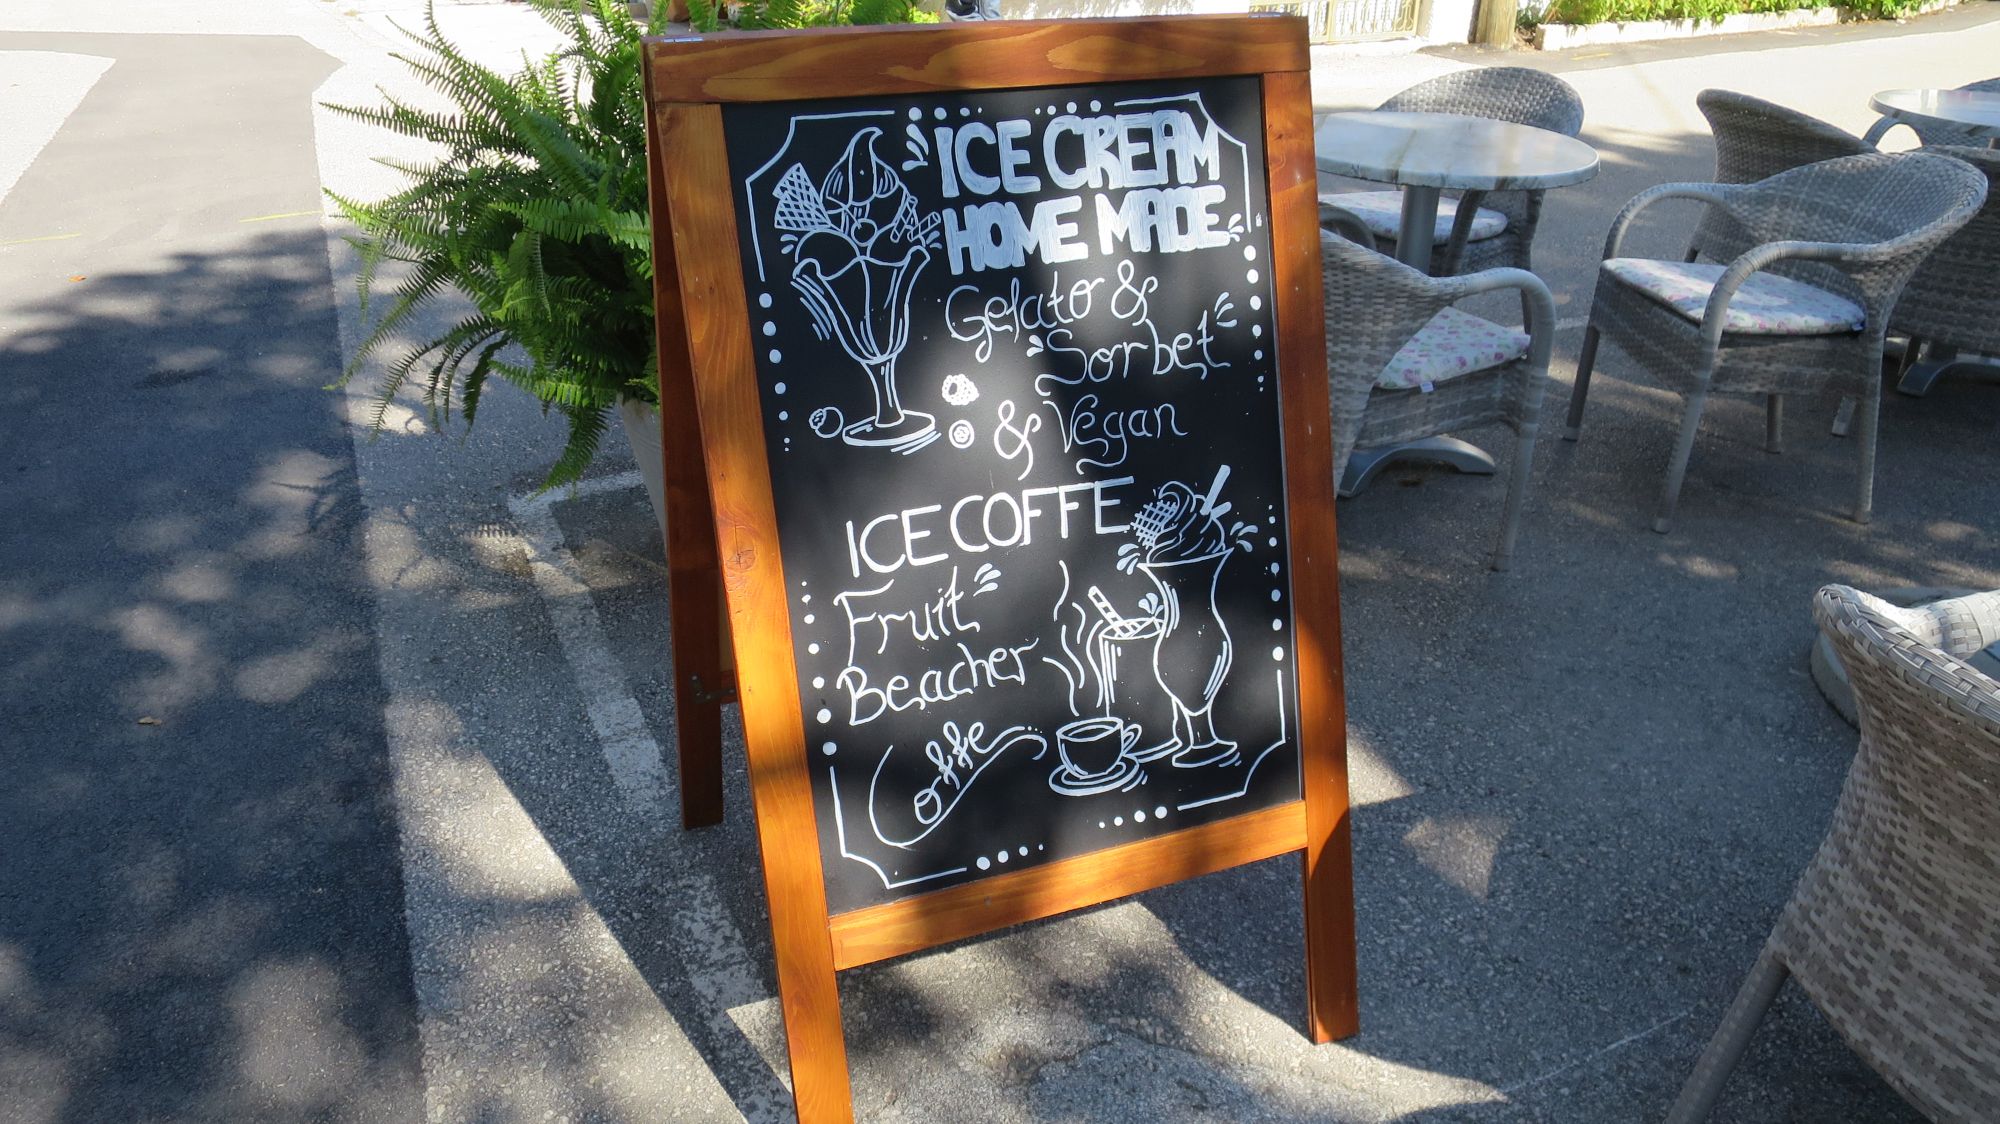 ICE CREAM
HOME MADE
Gelato &
Sorbet
& Vegan
ICE COFFE
Fruit
Beacher
Coffe